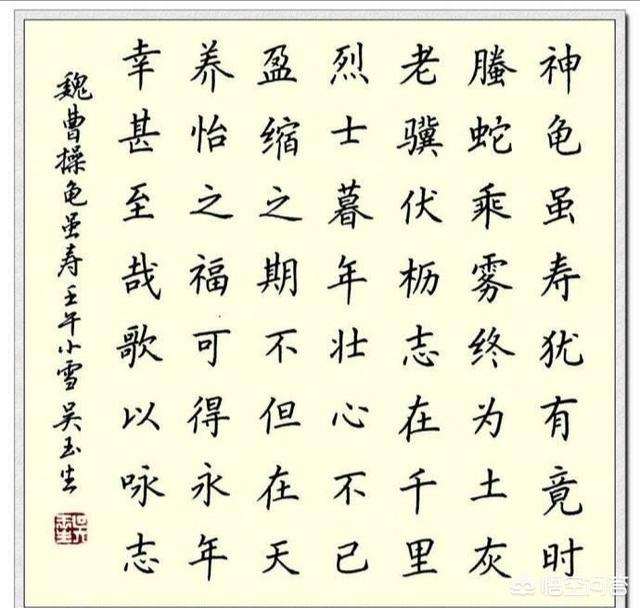 神龟虽寿犹有竟时
螣蛇乘雾终为土灰
老骥伏枥志在千里
烈士暮年壮心不已
盈缩之期不但在天
养怡之福可得永年
幸甚至哉歌以咏志
魏曹操龟虽寿 壬午小雪 吴玉生
悟空问答